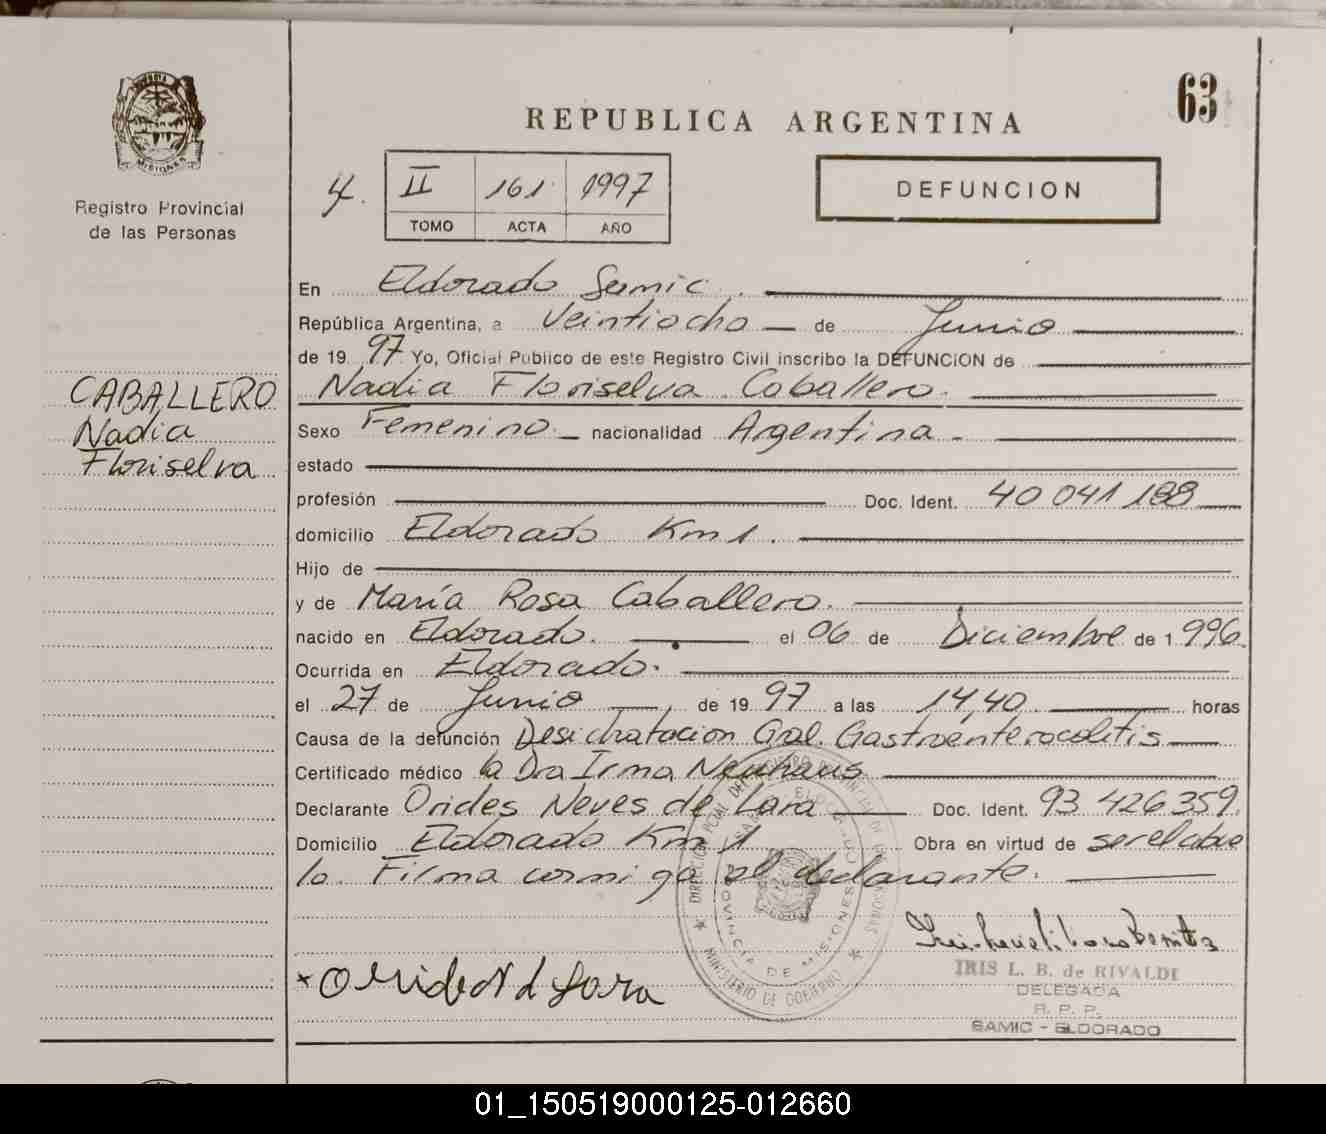 MISIONES
Registro Provincial
de las Personas
CABALLERO
Nadia
Floriselva
63
REPUBLICA ARGENTINA
II 161 1997
TOMO ACTA AÑO
DEFUNCION
En Eldorado Samic.
República Argentina, a Veintiocho de Junio
de 19 97 Yo, Oficial Público de este Registro Civil inscribo la DEFUNCION de
Nadia Floriselva Caballero.
Sexo Femenino. nacionalidad Argentina.
estado
profesión Doc. Ident. 40 041 188
domicilio Eldorado Km 1.
Hijo de
y de María Rosa Caballero.
nacido en Eldorado. el 06 de Diciembre de 1 996
Ocurrida en Eldorado.
el 27 de Junio, de 19 97 a las 14,40 horas
Causa de la defunción Desichatacion Gral. Gastroenterocolitis
Certificado médico la Dra Irma Neuhaus
Declarante Orides Neves de Lara Doc. Ident. 93 426 359.
Domicilio Eldorado Km 1 Obra en virtud de ser el abue
lo. Firma conmigo el declarante.
DIRECCION PCIAL DEL REGISTRO PROVINCIAL DE LAS PERSONAS
PROVINCIA DE MISIONES
MINISTERIO DE GOBIERNO
IRIS L. B. de RIVALDI
DELEGADA
R. P. P.
SAMIC - ELDORADO
01_150519000125-012660